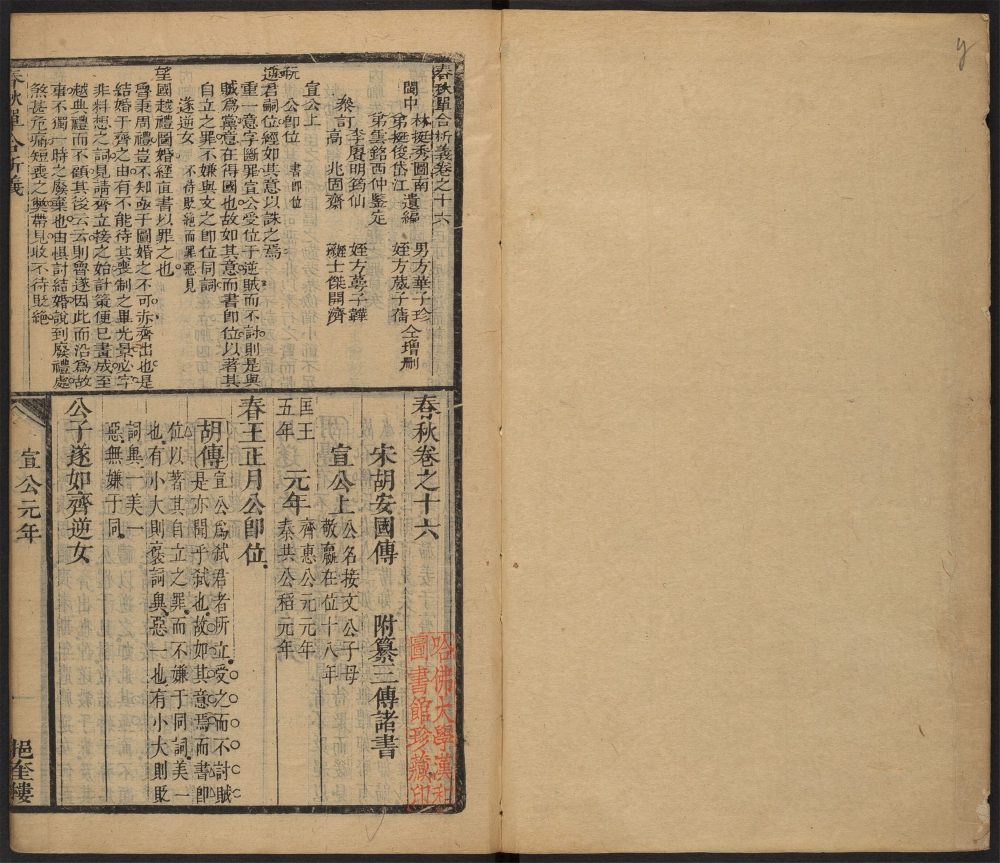 春秋單合析義卷之十六
閩中林挺秀圖南
弟挺俊岱江
遺編
男方華子珍
姪方蕆子蒨
仝增刪
弟雲銘西仲鑒定
李賡明筠仙
高兆固齋
叅訂
姪方蕚子韡
士傑開濟
宣公上
公即位 書即位
遁君嗣位經如其意以誅之焉
重一意字斷罪宣公受位于逆賊而不討則是與
賊爲黨意在得國也故如其意而書即位以著其
自立之罪不嫌與文之即位同詞
遂逆女 不待貶絶而罪惡見
望國越禮圖婚經直書以罪之也
魯秉周禮豈不知亟于圖婚之不可亦齊出也是
結婚于齊之由有不能待其喪制之畢光景必字
非料想之詞見請齊立接之始計策便已畫成至
越典禮而不顧其後云云則魯遂因此而沿爲故
事不獨一時之廢棄也由惧討結婚說到廢禮處
煞甚危痛短喪之與帶見敢不待貶絶
春秋單合析義
春秋卷之十六
宋胡安國傳 附纂三傳諸書
宣公上 公名接文公子母
敬嬴在位十八年
匡王
五年
元年 齊惠公元元年
秦共公稻元年
春王正月公即位
胡傳 宣公爲弑君者所立受之而不討賊
是亦聞乎弑也故如其意焉而書即
位以著其自立之罪而不嫌于同詞美一
也有小大則褒詞異惡一也有小大則貶
詞異一美一
惡無嫌于同
公子遂如齊逆女
宣公元年
一
挹奎樓
哈佛大學漢和
圖書館珍藏印